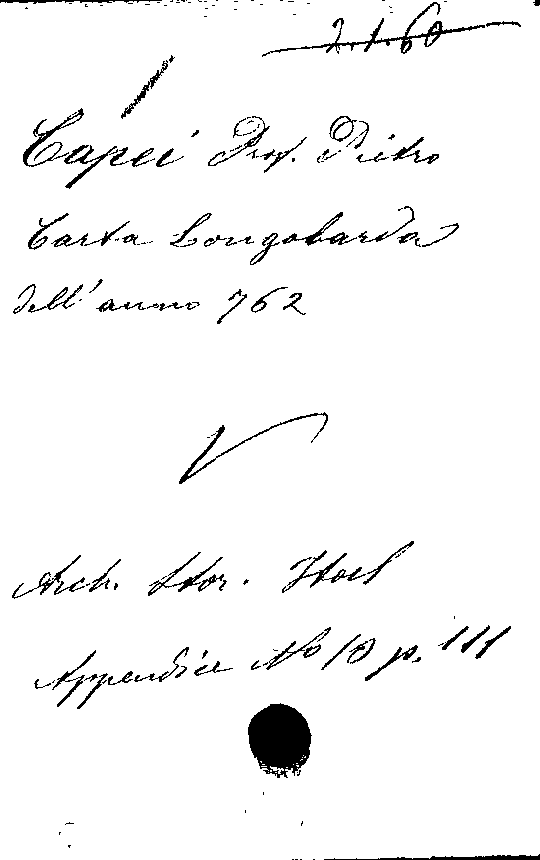 2.1.60
Capei Prof. Pietro
Carta Longobarda
dell' anno 762
Arch. Stor. Ital
Appendice No 10 p. 111